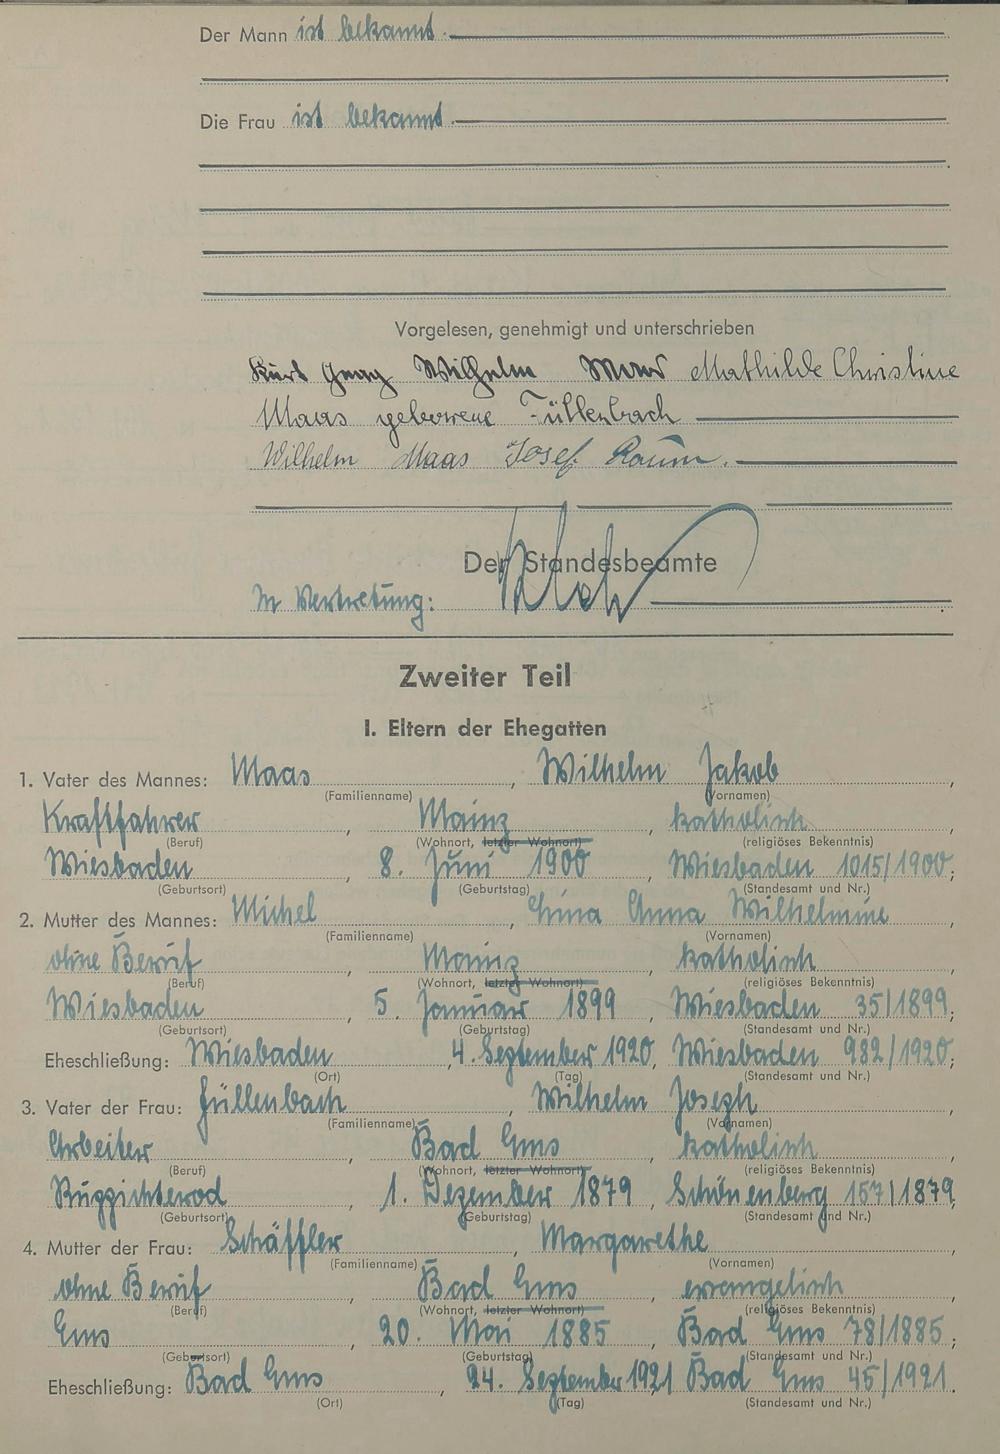 Der Mann ist bekannt.
Die Frau ist bekannt.
Vorgelesen, genehmigt und unterschrieben
Kurt Georg Wilhelm Maas Mathilde Christine
Maas geborene Füllenbach
Wilhelm Maas Josef Raum.
Der Standesbeamte
In Vertretung:
Zweiter Teil
I. Eltern der Ehegatten
1. Vater des Mannes: Maas, Wilhelm Jakob,
(Familienname) (Vornamen)
Kraftfahrer, Mainz, katholisch,
(Beruf) (Wohnort, letzter Wohnort) (religiöses Bekenntnis)
Wiesbaden, 8. Juni 1900, Wiesbaden 1015/1900;
(Geburtsort) (Geburtstag) (Standesamt und Nr.)
2. Mutter des Mannes: Michel, Anna Wilhelmine,
(Familienname) (Vornamen)
ohne Beruf, Mainz, katholisch,
(Beruf) (Wohnort, letzter Wohnort) (religiöses Bekenntnis)
Wiesbaden, 5. Januar 1899, Wiesbaden 35/1899;
(Geburtsort) (Geburtstag) (Standesamt und Nr.)
Eheschließung: Wiesbaden, 4. September 1920, Wiesbaden 982/1920;
(Ort) (Tag) (Standesamt und Nr.)
3. Vater der Frau: Füllenbach, Wilhelm Joseph,
(Familienname) (Vornamen)
Arbeiter, Bad Ems, katholisch,
(Beruf) (Wohnort, letzter Wohnort) (religiöses Bekenntnis)
Ruppichterod, 1. Dezember 1879, Schönenberg 157/1879,
(Geburtsort) (Geburtstag) (Standesamt und Nr.)
4. Mutter der Frau: Schäffler, Margarethe,
(Familienname) (Vornamen)
ohne Beruf, Bad Ems, evangelisch,
(Beruf) (Wohnort, letzter Wohnort) (religiöses Bekenntnis)
Ems, 20. Mai 1885, Bad Ems 78/1885;
(Geburtsort) (Geburtstag) (Standesamt und Nr.)
Eheschließung: Bad Ems, 24. September 1921 Bad Ems 45/1921.
(Ort) (Tag) (Standesamt und Nr.)